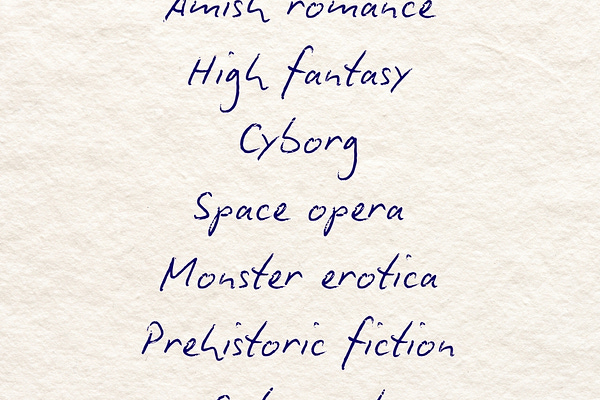 Amish romance
High fantasy
Cyborg
Space opera
Monster erotica
Prehistoric fiction